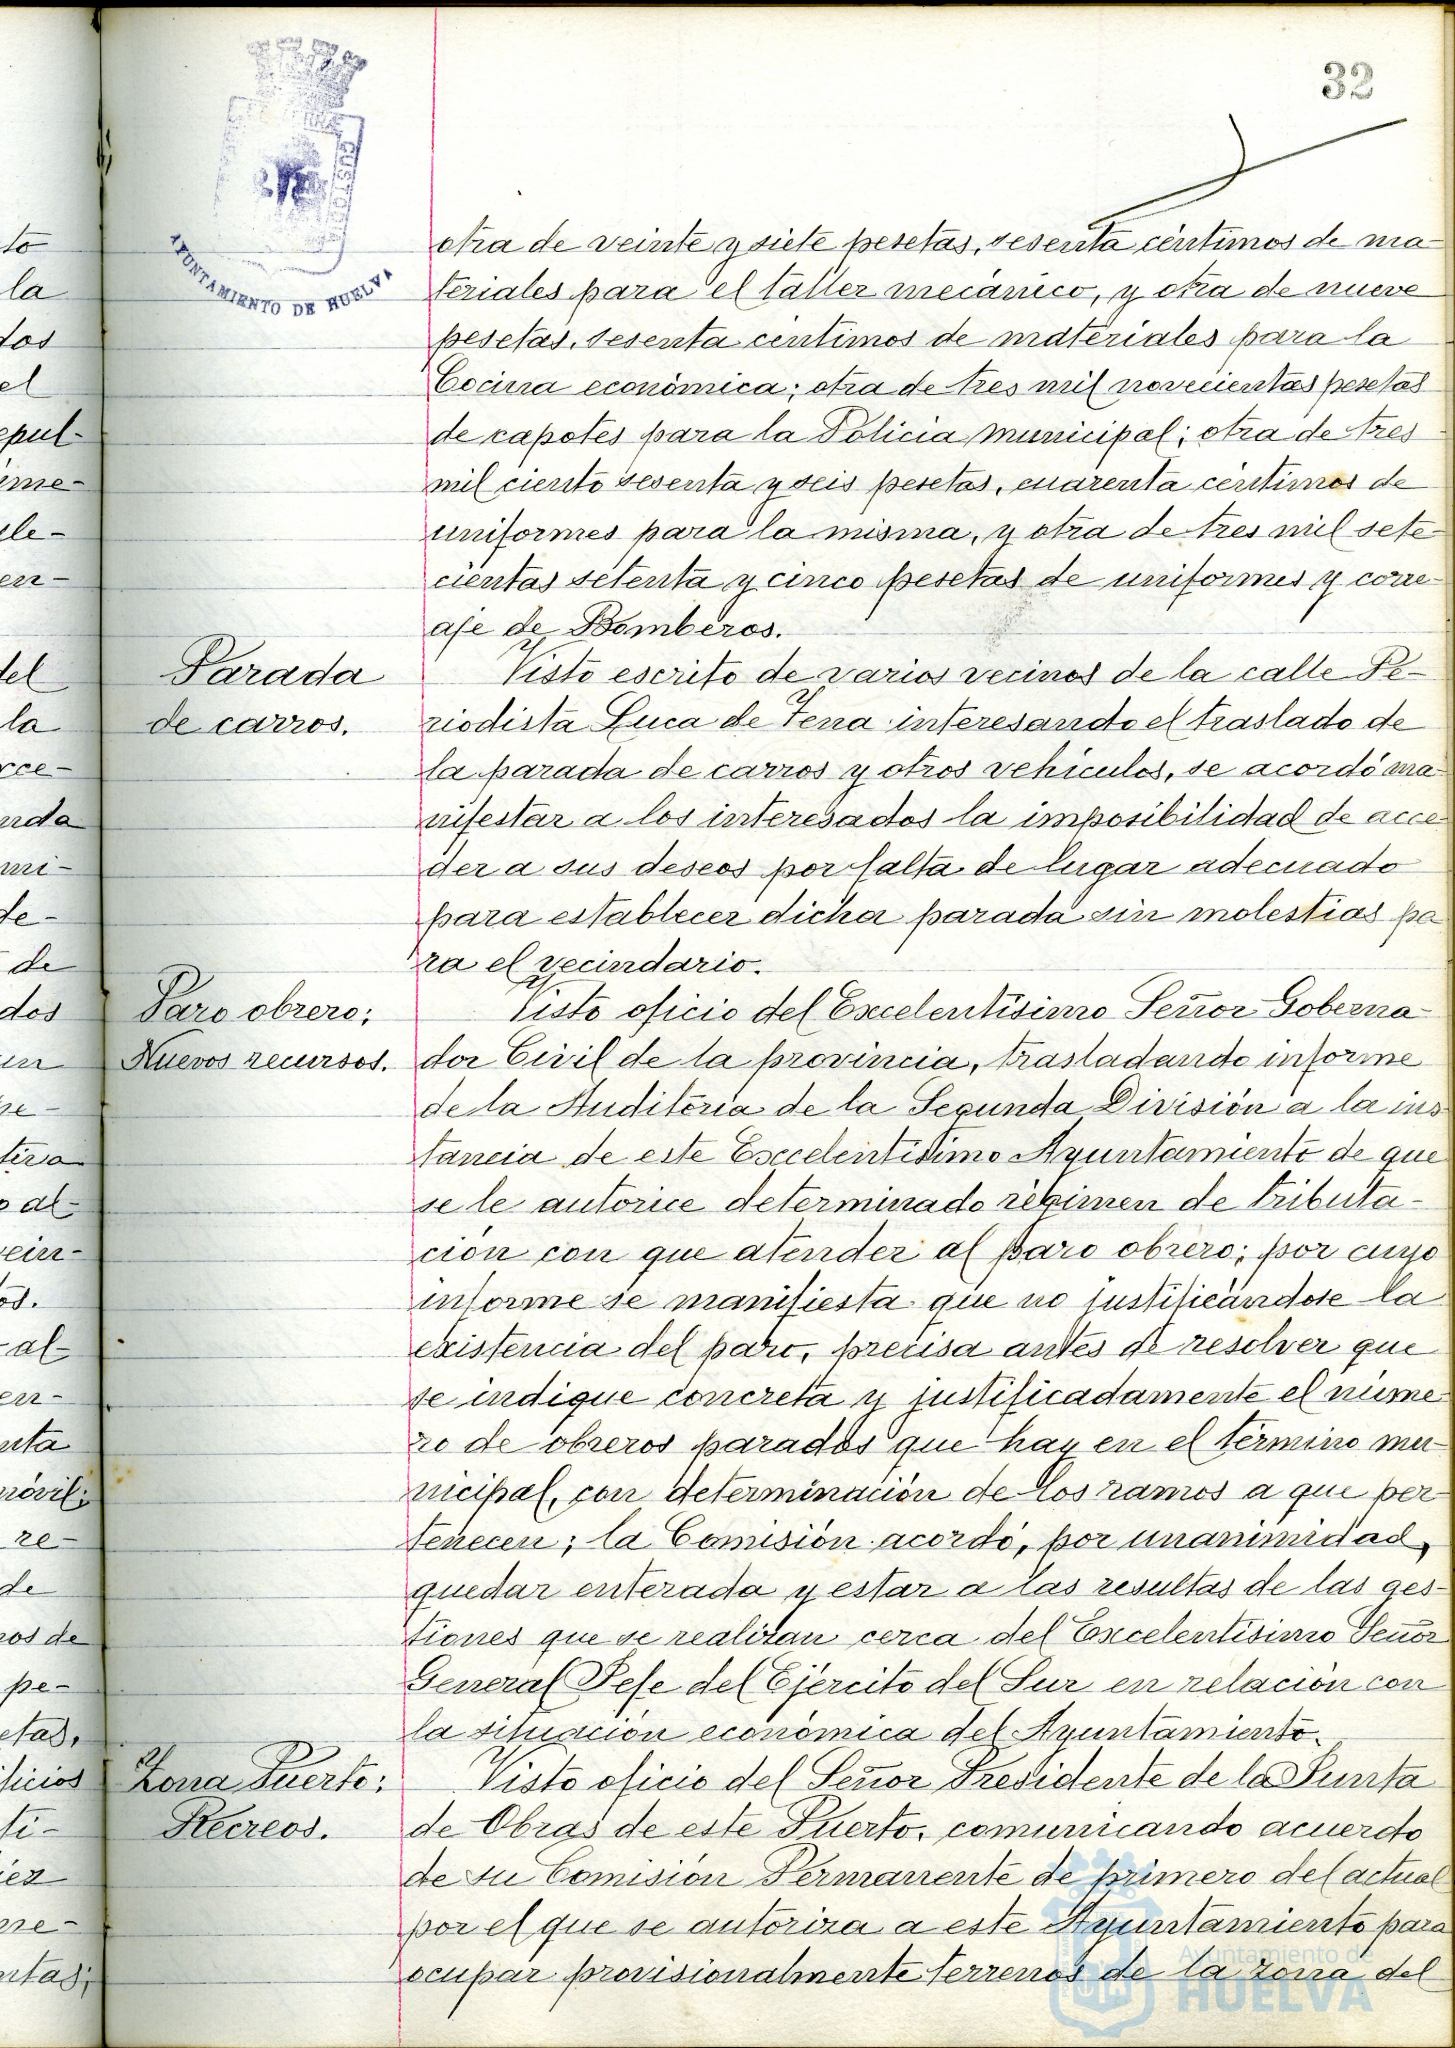 32
AYUNTAMIENTO DE HUELVA
otra de veinte y siete pesetas, sesenta céntimos de ma-
teriales para el taller mecánico, y otra de nueve
pesetas, sesenta céntimos de materiales para la
Cocina económica; otra de tres mil novecientas pesetas
de capotes para la Policia Municipal; otra de tres
mil ciento sesenta y seis pesetas, cuarenta céntimos de
uniformes para la misma, y otra de tres mil sete-
cientas setenta y cinco pesetas de uniformes y corre-
aje de Bomberos.
Parada
de carros.
Visto escrito de varios vecinos de la calle Pe-
riodista Luca de Tena interesando el traslado de
la parada de carros y otros vehículos, se acordó ma-
nifestar a los interesados la imposibilidad de acce-
der a sus deseos por falta de lugar adecuado
para establecer dicha parada sin molestias pa-
ra el vecindario.
Paro obrero;
Nuevos recursos.
Visto oficio del Excelentísimo Señor Goberna-
dor Civil de la provincia, trasladando informe
de la Auditoría de la Segunda División a la ins-
tancia de este Excelentísimo Ayuntamiento de que
se le autorice determinado régimen de tributa-
ción con que atender al paro obrero; por cuyo
informe se manifiesta que no justificándose la
existencia del paro, precisa antes de resolver que
se indique concreta y justificadamente el núme-
ro de obreros parados que hay en el término mu-
nicipal, con determinación de los ramos a que per-
tenecen; la Comisión acordó, por unanimidad,
quedar enterada y estar a las resultas de las ges-
tiones que se realizan cerca del Excelentísimo Señor
General Jefe del Ejército del Sur en relación con
la situación económica del Ayuntamiento.
Zona Puerto;
Recreos.
Visto oficio del Señor Presidente de la Junta
de Obras de este Puerto, comunicando acuerdo
de su Comisión Permanente de primero del actual
por el que se autoriza a este Ayuntamiento para
ocupar provisionalmente terrenos de la zona del
Ayuntamiento de
HUELVA